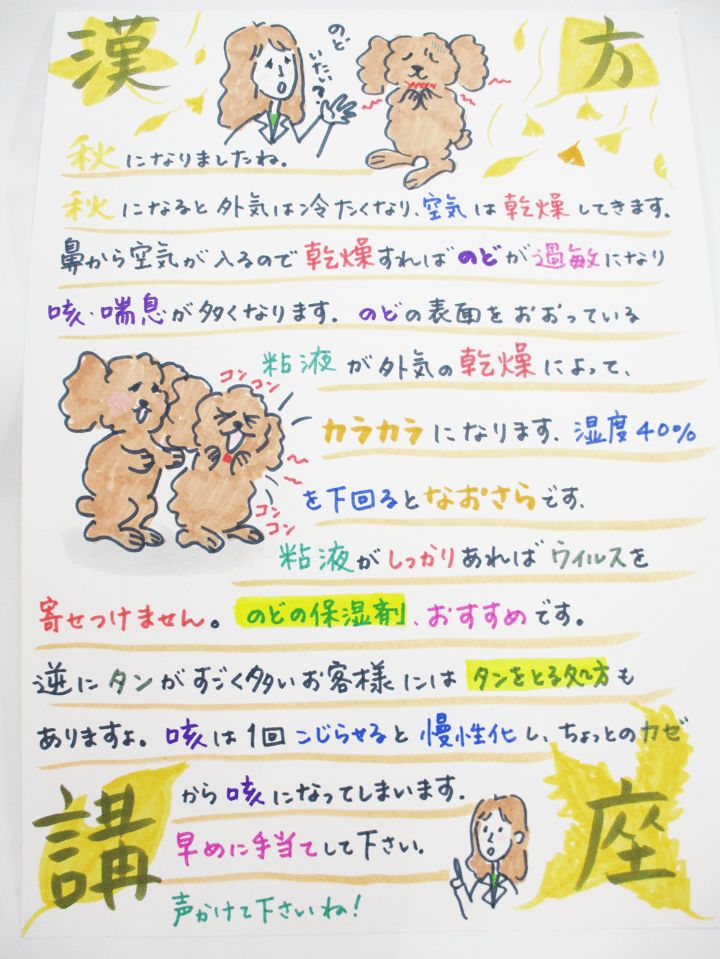 漢方
のど
いたい?
秋になりましたね。
秋になると外気は冷たくなり、空気は乾燥してきます。
鼻から空気が入るので乾燥すればのどが過敏になり
咳・喘息が多くなります。のどの表面をおおっている
粘液が外気の乾燥によって、
コンコン
カラカラになります。湿度40%
を下回るとなおさらです。
コンコン
粘液がしっかりあればウイルスを
寄せつけません。のどの保湿剤、おすすめです。
逆にタンがすごく多いお客様にはタンをとる処方も
ありますよ。咳は1回こじらせると慢性化し、ちょっとのカゼ
から咳になってしまいます。
早めに手当てして下さい。
声かけて下さいね!
講座